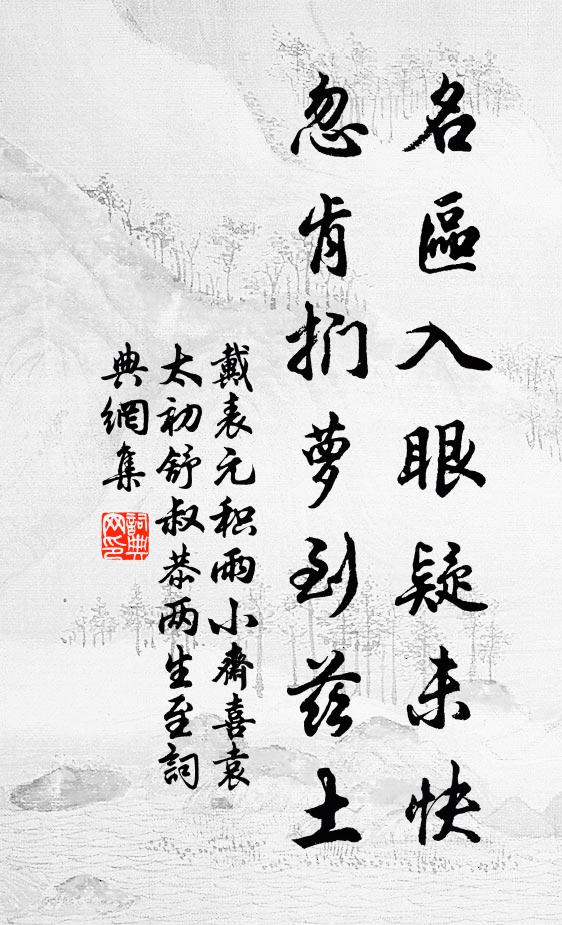 名區入眼疑未快
忽肯捫蘿到茲土
戴表元积雨小齋喜袁
太初舒叔恭两生至詞
典網集
詞典
网印